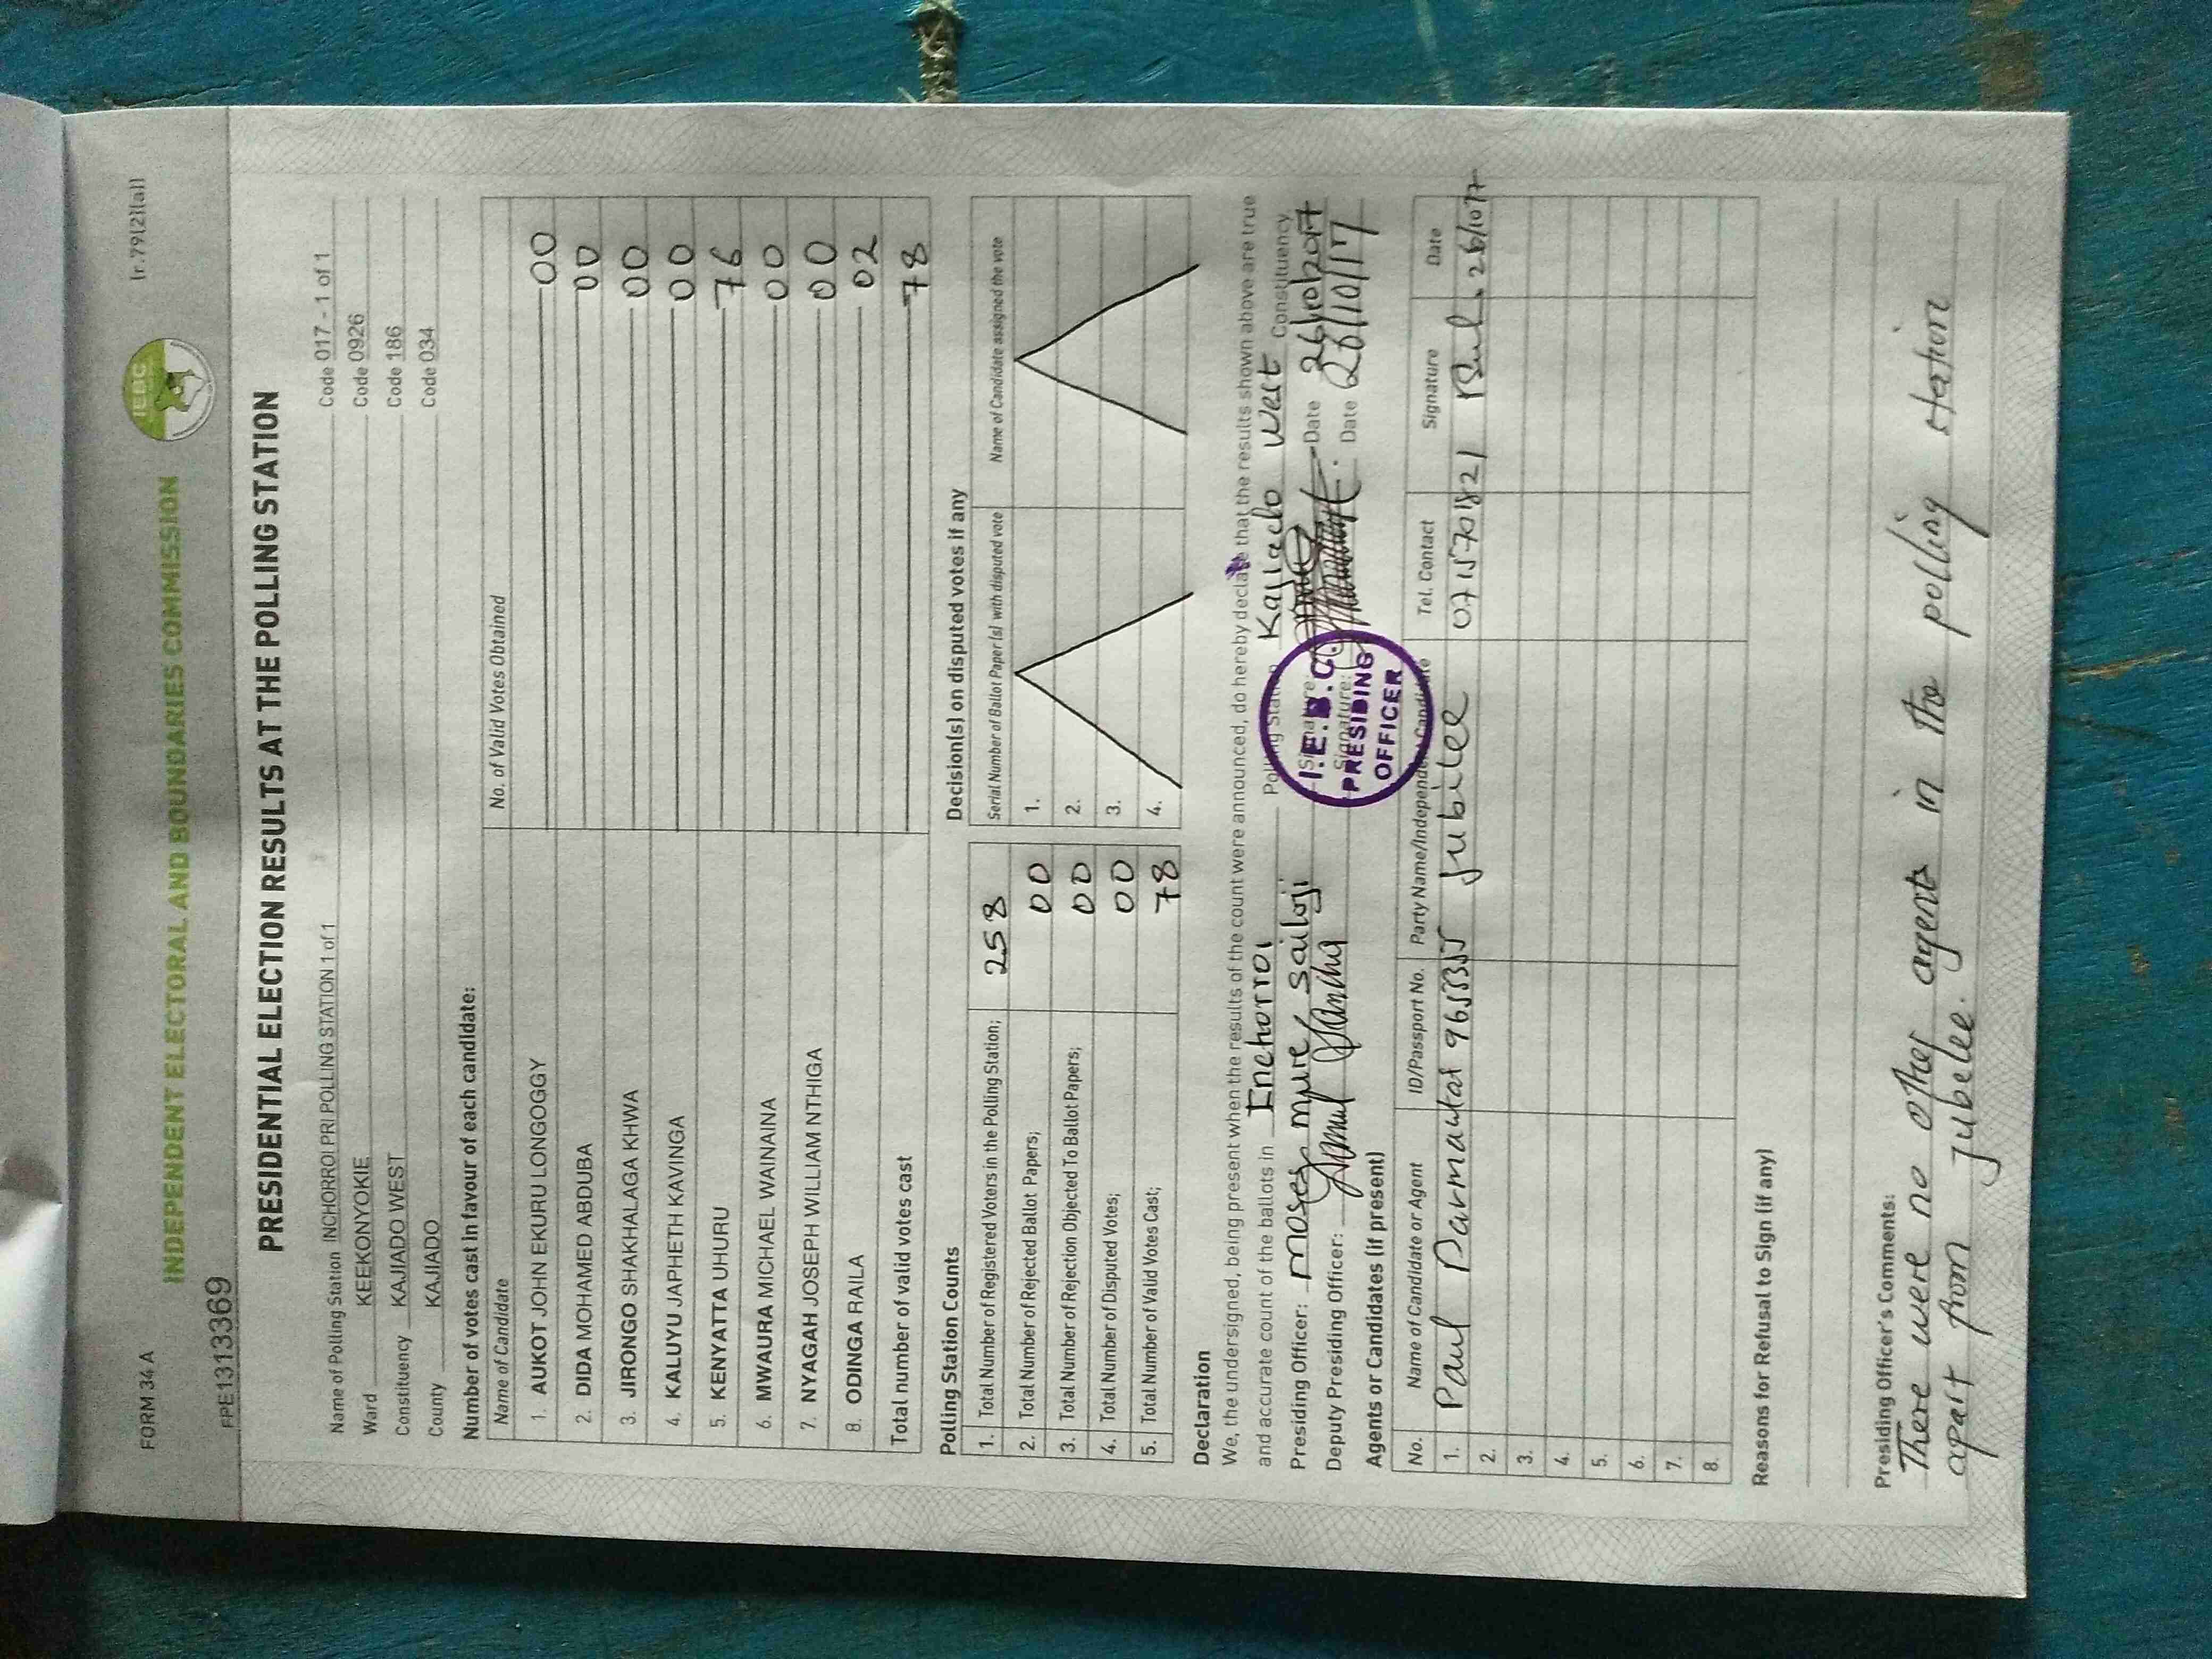 FORM 34 A
(r.79(2)(a))
IEBC
INDEPENDENT ELECTORAL AND BOUNDARIES COMMISSION
FPE1313369
PRESIDENTIAL ELECTION RESULTS AT THE POLLING STATION
Name of Polling Station INCHORROI PRI POLLING STATION 1 of 1 Code 017 - 1 of 1
Ward KEEKONYOKIE Code 0926
Constituency KAJIADO WEST Code 186
County KAJIADO Code 034
Number of votes cast in favour of each candidate:
Name of Candidate No. of Valid Votes Obtained
1. AUKOT JOHN EKURU LONGOGGY 00
2. DIDA MOHAMED ABDUBA 00
3. JIRONGO SHAKHALAGA KHWA 00
4. KALUYU JAPHETH KAVINGA 00
5. KENYATTA UHURU 76
6. MWAURA MICHAEL WAINAINA 00
7. NYAGAH JOSEPH WILLIAM NTHIGA 00
8. ODINGA RAILA 02
Total number of valid votes cast 78
Polling Station Counts
1. Total Number of Registered Voters in the Polling Station; 258
2. Total Number of Rejected Ballot Papers; 00
3. Total Number of Rejection Objected To Ballot Papers; 00
4. Total Number of Disputed Votes; 00
5. Total Number of Valid Votes Cast; 78
Decision(s) on disputed votes if any
Serial Number of Ballot Paper (s) with disputed vote Name of Candidate assigned the vote
1.
2.
3.
4.
Declaration
We, the undersigned, being present when the results of the count were announced, do hereby declare that the results shown above are true
and accurate count of the ballots in Inchorroi Polling Station Kajiado West Constituency
Presiding Officer: Moses mpire sailoji Signature: Date 26/10/2017
Deputy Presiding Officer: Signature: Date 26/10/17
I.E.B.C.
PRESIDING
OFFICER
Agents or Candidates (if present)
No. Name of Candidate or Agent ID/Passport No. Party Name/Independent Candidate Tel. Contact Signature Date
1. Paul Jubilee 0715701821
2.
3.
4.
5.
6.
7.
8.
Reasons for Refusal to Sign (if any)
Presiding Officer's Comments:
There were no other agents in the polling station
apart from Jubelee.